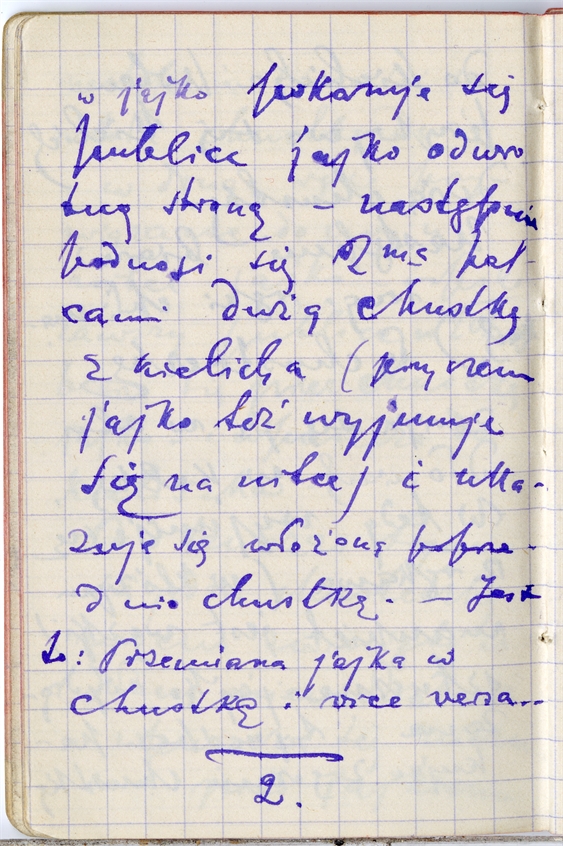 w jajko pokazuje się
publice jajko odwro
tną stroną – następnie
podnosi się 2 ma pal-
cami dużą chustkę
z kielicha (przyczem
jajko też wyjmuje
się na nitce) i uka-
zuje się włożoną poprze-
dnio chustkę. – Jest
to: Przemiana jajka w
chustkę i vice versa...
2.